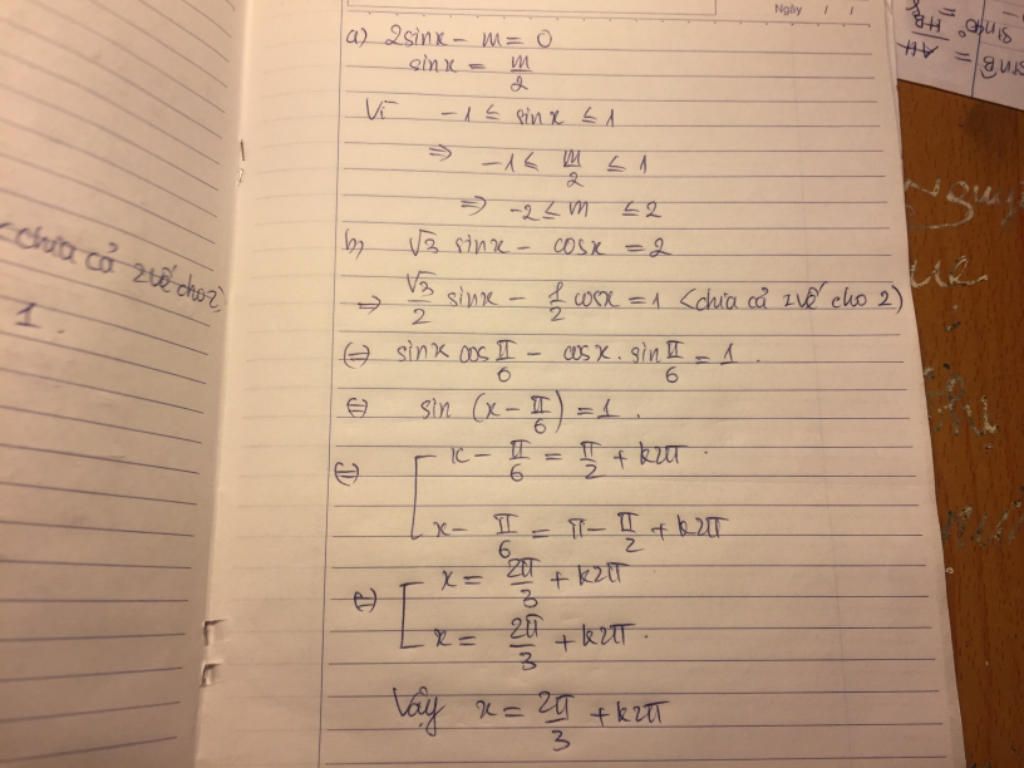 <chia cả 2 vế cho 2)
1.
Ngày / /
a) 2sinx - m = 0
sinx = m/2
Vì -1 ≤ sinx ≤ 1
⇒ -1 ≤ m/2 ≤ 1
⇒ -2 ≤ m ≤ 2
b, √3 sinx - cosx = 2
⇒ √3/2 sinx - 1/2 cosx = 1 <chia cả 2 vế cho 2)
(=) sinx cos π/6 - cosx . sin π/6 = 1 .
(=) sin (x - π/6) = 1 .
(=) [ x - π/6 = π/2 + k2π .
x - π/6 = π - π/2 + k2π
(=) [ x = 2π/3 + k2π
x = 2π/3 + k2π .
Vậy x = 2π/3 + k2π
sinB = AH/HB